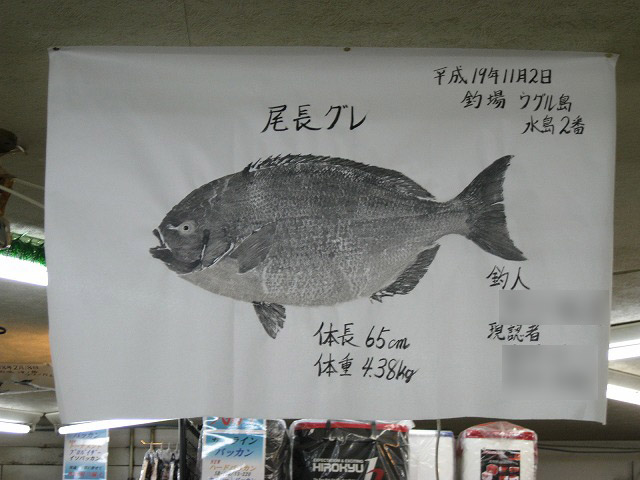 平成19年11月2日
釣場 ウグル島
水島2番
尾長グレ
釣人
現認者
体長 65cm
体重 4.38kg
HIROKYU